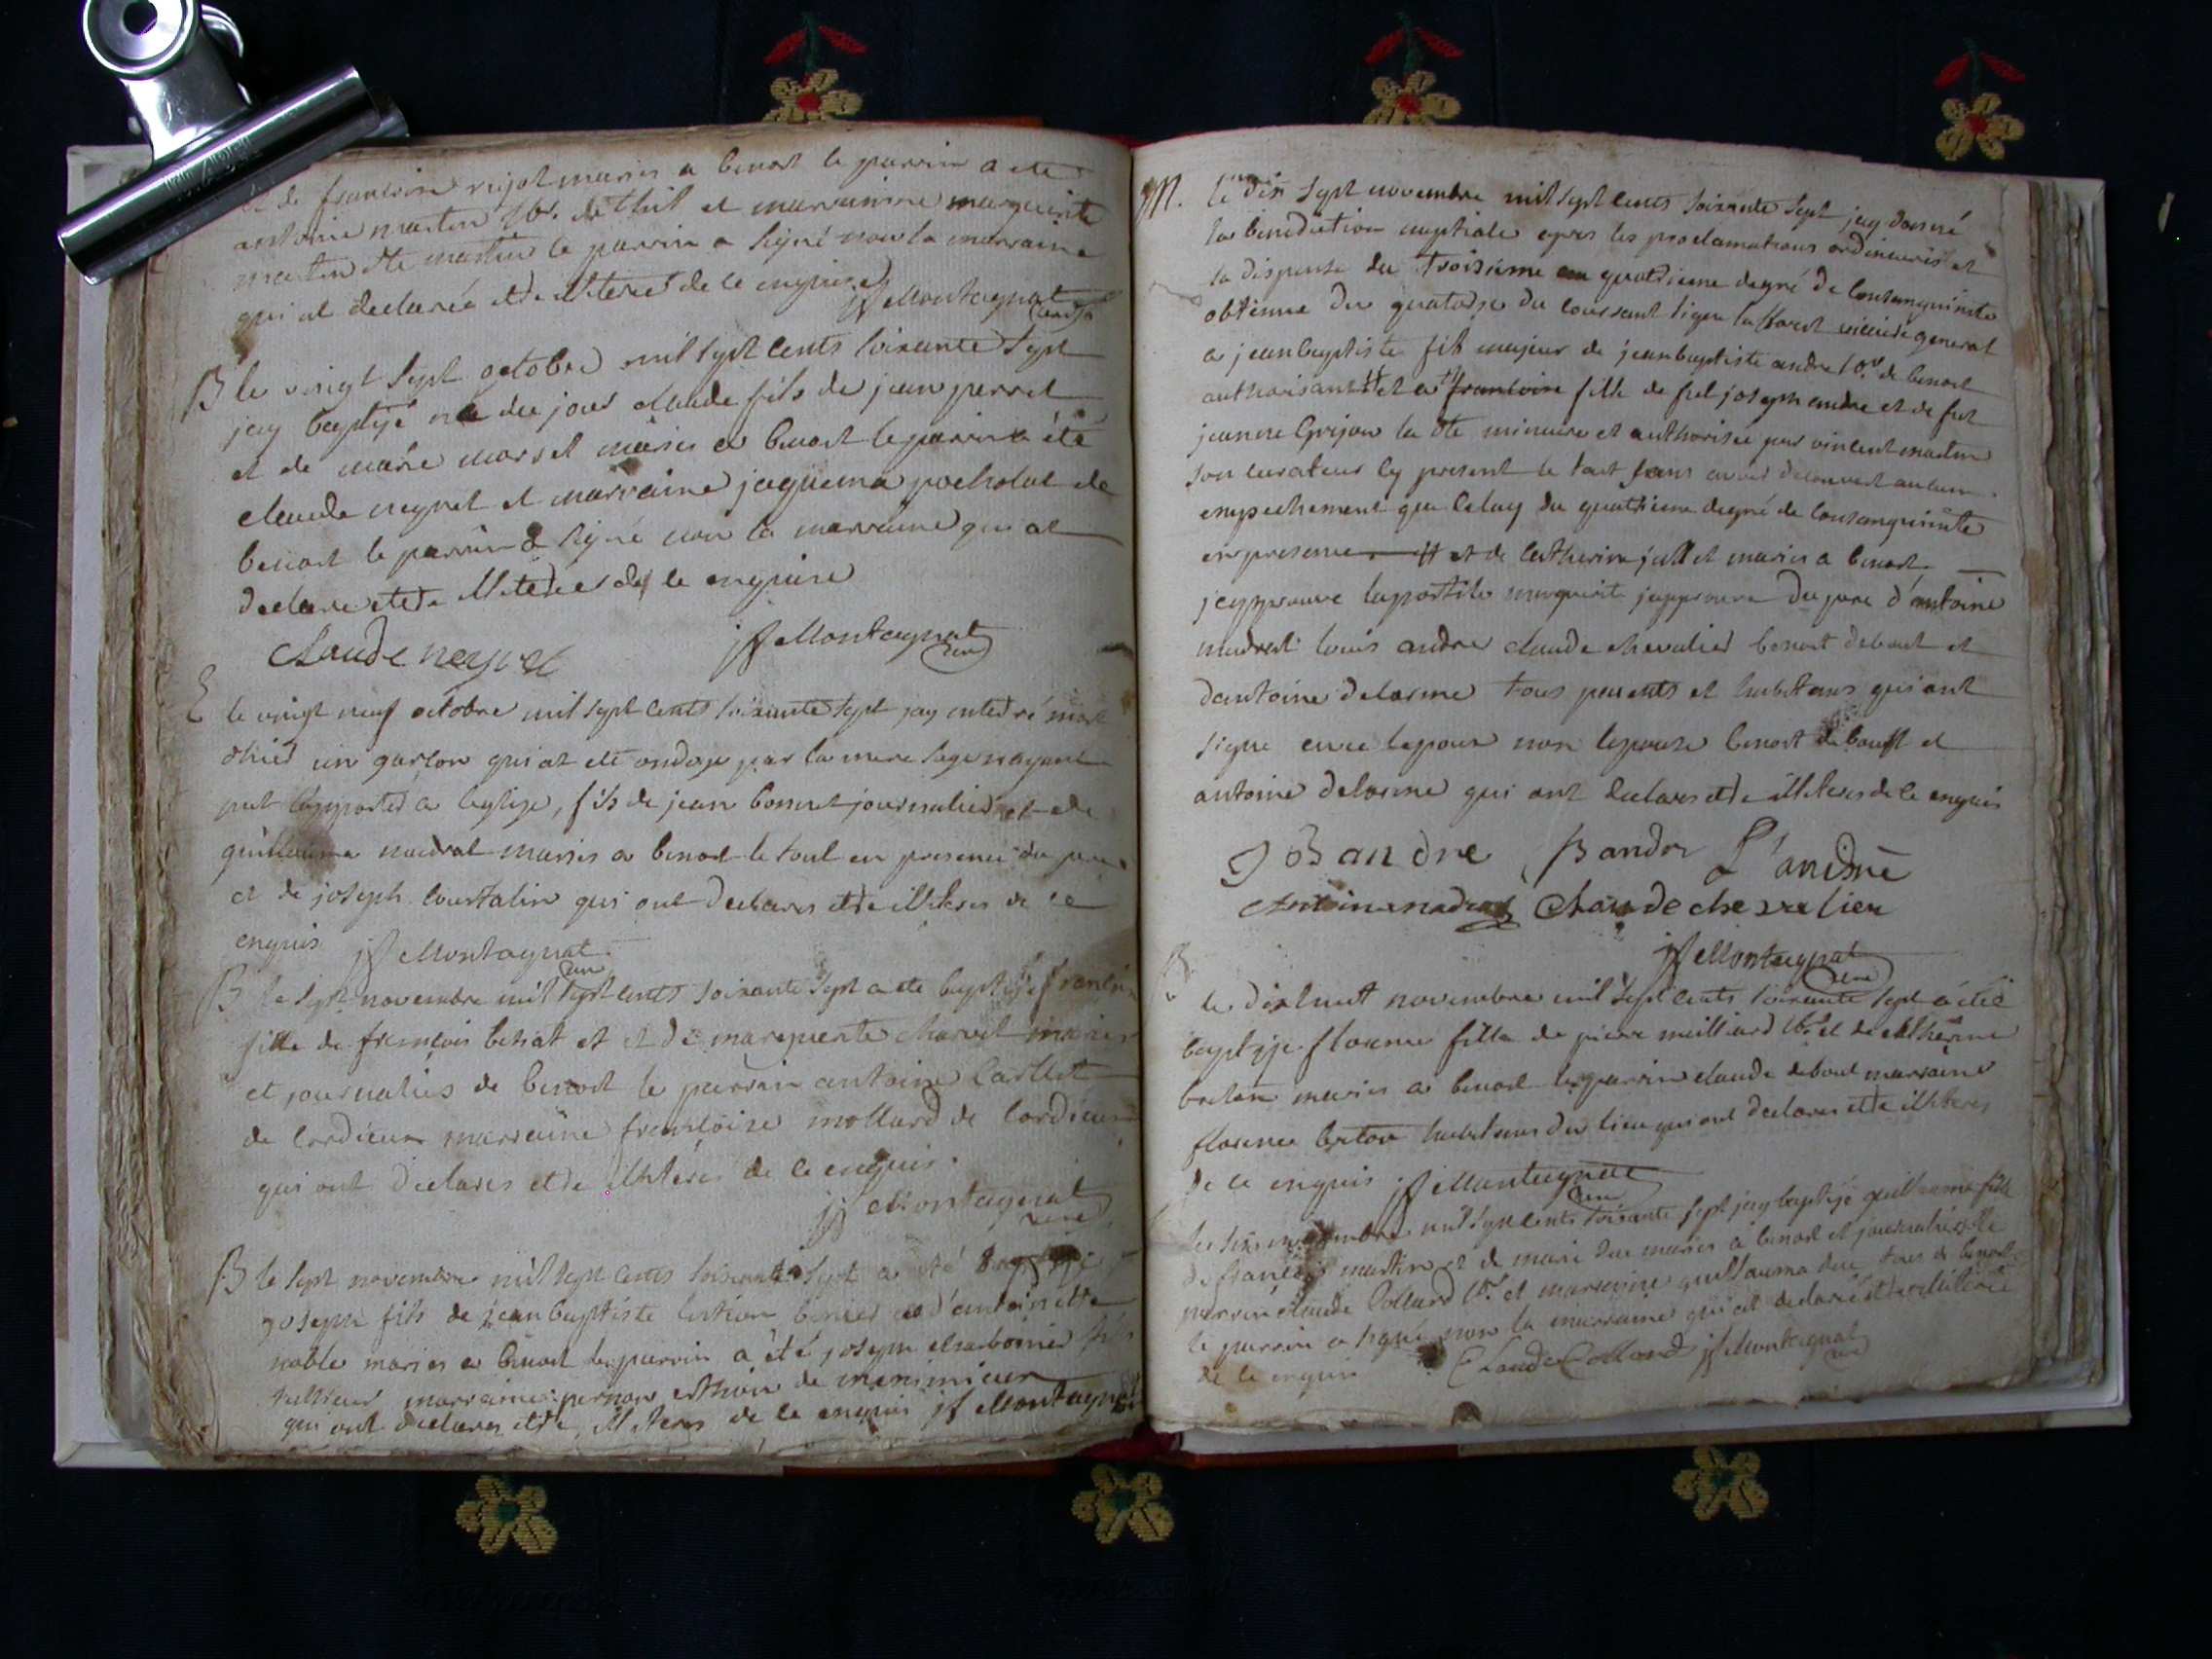 de rigot mariés a benost le parrin a ete
antoine martin lbr. de thil et marrainne marguerite
martin dte martin le parrin a signé non la marraine
qui at declarée etre illiteré de ce enquise
jf Montagnat
curé
B le vingt sept octobre mil sept cents soixante sept
jay baptisé né du jour claude fils de jean perret
et de marie morset mariés a benost le parrin a été
claude neyret et marraine jaquema pocholat de
benost le parrin a signé non la marraine qui at
declaré etre illiteré de ce enquise
claude neyret jf Montagnat
curé
E le vingt neuf octobre mil sept cents soixante sept jay enterré mort
un garson qui at eté ondoye par la mere sage nayant
put lapporter a leglise, fils de jean bonnet journalier et de
guillauma nadrat mariés a benost le tout en presence du pere
et de joseph coustalin qui ont declarés etre illiteres de ce
enquis jf Montagnat
curé
B le sept novembre mil sept cents soixante sept a ete baptisé
fille de françois et de marguerite charvet mariés
et journaliés de benost le parrin antoine carlet
de cordieux marraine françoise mollard de cordieux
qui ont declarés etre illiterés de ce enquis.
jf Montagnat
curé
B le sept novembre mil sept cents soixante sept a eté baptisé
joseph fils de jean baptiste et d'antoinette
noble mariés a benost le parrin a été joseph charbonier fils
marraine pernon de meximieux
qui ont declarés etre illiteres de ce enquis jf Montagnat
M. le dix sept novembre mil sept cents soixante sept jay donné
la benediction nuptiale apres les proclamations ordinaires et
la dispense du troisieme au quatrieme degré de consanguinité
obtenue du quatorze du courant signé vicaire general
a jean baptiste fils majeur de jean baptiste andre lbr de benost
authorisant et a francoise fille de fut joseph andre et de fut
jeanne Grijon la dte mineure et authorisée par vincent martin
son curateur cy present le tout sans avoir decouvert aucun
empechement que celuy du quatrieme degré de consanguinité
en presence et de catherine jullet mariés a benost
japprouve lapostile marguerite japprouve du pere d'antoine
nadrat louis andre claude chevalier benost debout et
dantoine delorme tous parents et habitans qui ont
signé avec lepoux non lepouse benost debout et
antoine delorme qui ont declarés etre illiteres de ce enquis
J B andre B andre L'andre
Antoine nadrat Claude chevalier
jf Montagnat
curé
B le dixhuit novembre mil sept cents soixante sept a été
baptisée florence fille de piere meilliard lbr. et de catherine
breton mariés a benost le parrin claude debout marraine
florence breton habitans du lieu qui ont declarés etre illiteres
de ce enquis jf Montagnat
curé
le novembre mil sept cents soixante sept jay baptisé guillauma fille
de françois martin et de marie due mariés a benost et journaliés le
parrin claude Collard lbr. et marraine guillauma due tous de benost
le parrin a signé non la marraine qui at declaré etre illiteré
de ce enquis Claude Collard jf Montagnat
curé